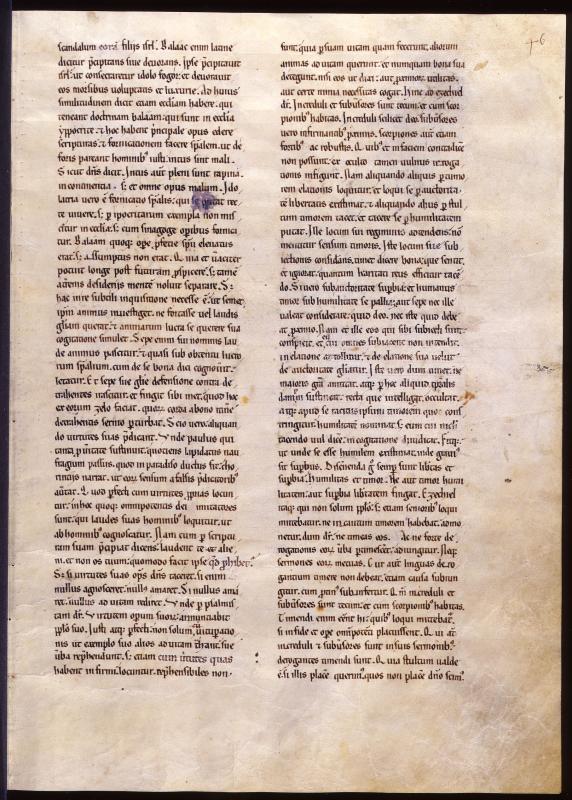 46
scandalum corā filiis isrł. Balaac enim latine
dicitur p̄cipitans siue deuorans. Ipse p̄cipitauit
isrł. ut consecraretur idolo fogor: et deuorauit
eos morsibus uoluptatis et luxurie. Ad huius
similitudinem dicit etiam ecclīam habere. qui
teneant doctrinam balaam: qui sunt in ecclīa
yppocrite. ⁊ hoc habent p̄ncipale opus edere
scripturas: ⁊ fornicationem facere sp̄alem. ut de
foris pareant hominibꝰ iusti: intus sint mali.
Sicut dn̄s dicit. Intus aut̄ pleni sunt rapina.
incontinentia. s; et omne opus malum. Ido
latria uero ē fornicatio sp̄alis: qui se putat rec
te uiuere. s; ꝑ ipocritarum exempla non mis
cetur in ecclīa: s; cum sinagoge opibus fornica
tur. Balaam quoq; ope ꝓfetie sp̄u eleuatus
erat: s; assumptus non erat. Q̄ ma et uaciter
potuit longe post futuram ꝓspicere: s; tamē
a t̄renis desideriis mente noluit separare. S;
hac in re subtili inquisitione necesse ē: ut semet
ipm̄ animus inuestiget. ne forcasse uel laudis
gl̄iam querat: ⁊ animarum lucra se querere sua
cogitatione simulet. Sepe enim sui nominis lau
de animus pascitur: ⁊ quasi sub obtentu lucro
rum sp̄alium. cum de se bona dici cognouīt.
letatur. Et sepe sue gl̄ie defensione contra de
trahentes irascitur. et fingit sibi met. quod hoc
et eorum zelo faciat. quorꝫ corda abono itin̄e
detrahentis sermo ꝑturbat. Scio uero aliquan
do uirtutes suas p̄dicant. Vnde paulus qui
tanta ꝑuntate sustinuit. quotiens lapidatus nau
fragium passus. quod in paradiso ductus sit: cho
rintiis narrat. ut eorꝫ sensum afalsis p̄dicatoribꝰ
au̅tat. Quod ꝓfecti cum uirtutes ꝓprias locun
tur. in hoc quoq; omnipotentis dei imitatores
sunt. qui laudes suas hominibꝰ loquitur. ut
ab hominibꝰ cognoscatur. Nam cum ꝑ scriptu
ram suam p̄cipiat dicens. laudent te os alie
nū. et non os tuum: quomodo facit ipse qđ ꝓhibet?
S; si uirtutes suas op̄s dn̄s taceret. si enim
nullus agnosceret: nullus amaret. Si nullus ama
ret. nullus ad uitam rediret. Vnde ꝑ psalmis
tam dr̄. Virtutem opum suorꝫ annunciabit
ppl̄o suo. Iusti atq; ꝓfecti. non solum
nis ut exemplo suo alios ad uitam t̄hant. sue
uba rep̄hendunt. s; etiam cum uirtutes quas
habent infirmi. locuntur. rep̄hensibiles non
sunt. quia ꝑ suam uitam quam fecerunt. aliorum
animas ad uitam querunt. et numquam bona sua
detegunt. nisi eos ut dixi. aut ꝓximorꝫ utilitas.
aut certe nimia necessitas cogat. Hinc ad ezechiel
dr̄. Increduli et subuersores sunt tecum: et cum scor
pionibꝰ habitas. Increduli scilicet deo. subuersores
uero infirmantibꝰ ꝓximis. scorpiones aut̄ etiam
fortibꝰ ac robustis. Qui uibꝰ et in faciem contradice
non possunt: et occulto tamen uulnus detroga
tionis infigunt. Nam aliquando aliquis ꝑ timo
rem elationis loquitur. et loqui se ꝑ auctorita
te libertatis existimat: ⁊ aliquando alius ꝑ stul
tum timorem tacet. et tacere se ꝑ humilitatem
putat. Ille locum sui regiminis adtendens. nō
metitur sensum timoris. Iste locum sue sub
iectionis considerans. timet dicere bona: que sentit.
et ignorat. quantum karitati reus efficitur tacē
do. Si uero subauctoritate suꝑbia: et humanus
timor sub humilitate se palliat: aut sepe nec ille
ualeat considerare. quid deo. nec iste quid debe
at ꝓximo. Nam et ille eos qui sibi subiecti sunt.
compicit. et cui omnes subiacent non intendit.
in elatione attollitur: ⁊ de elatione sua uelut
de auctoritate gl̄iatur. Iste uero dum timet. ne
maioris gr̄a amittat. atq; ꝑ hoc aliquid tꝑalis
damp̄n sustineat: recta que intelligit. occultat.
Atq; apud se tacitus ipsum timorem quo cons
tringitur. humilitatē nominat: s; cum cui nich̄
tacendo uul dice: in cogitatione diiudicat. Fitq;
ut unde se esse humilem existimat. inde grauiꝰ
sit suꝑbus. Discernenda g̊ semꝑ sunt libtas et
suꝑbia: humilitas et timor. ne aut timor humi
litatem: aut suꝑbia libtatem fingat. Ezechiel
itaq; qui non solum ꝓpl̄o. s; etiam seniorib loqui
mittebatur. ne incautum timorem habebat. admo
netur. dum dr̄: ne timeas eos. Ac ne forte de
rogationis eorꝫ uba ꝑtimesceret. adiungitur. Neq;
sermones eorꝫ metuas. Sed ut aut̄ linguas dero
gantium timere non debeat. etiam causa subiun
gitur. cum ꝓtin̄ subinfertur. Qm̄ increduli et
subuersores sunt tecum: et cum scorpionibꝰ habitas.
Timendi enim eēnt hii: quibꝰ loqui mittebat̄.
si in fide et ope omip̄oteti placuissent. Qui aut̄
increduli ⁊ subuersores sunt in suis sermonibꝰ:
derogantes timendi sunt. Qui ma stultum ualde
ē: si illis placē querim̄. quos non placē dn̄o scim̄.